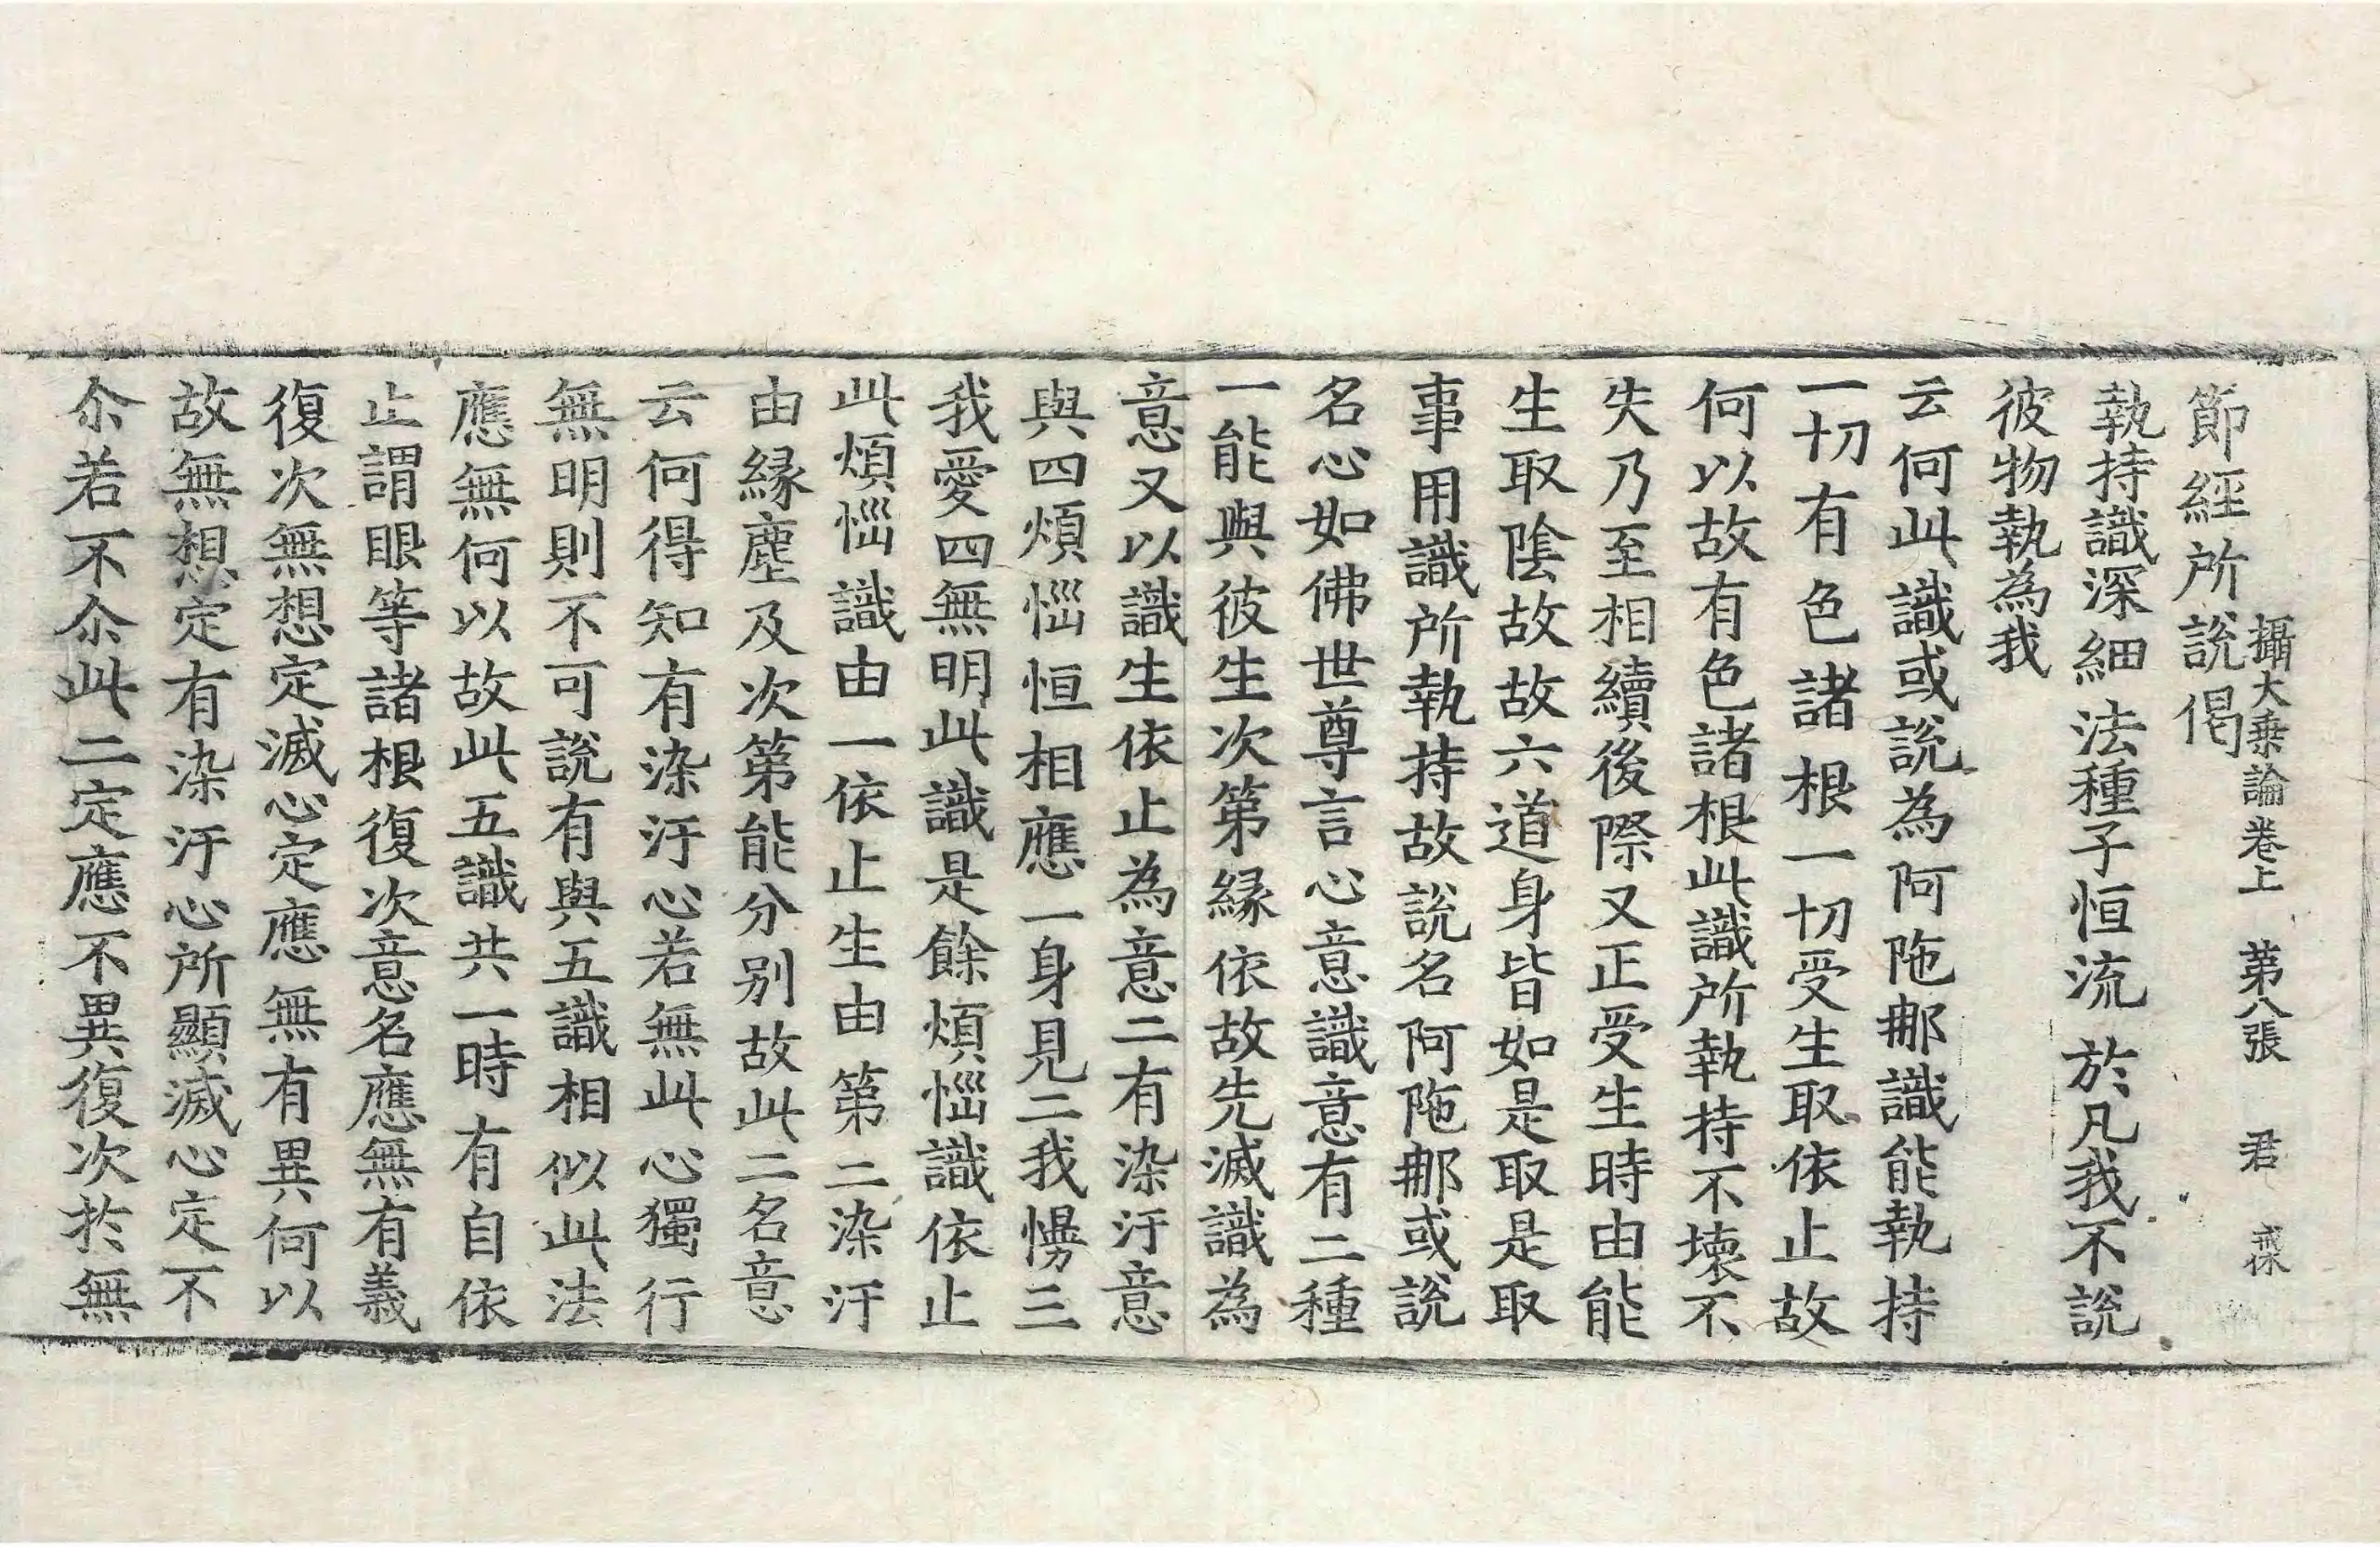 攝大乗論卷上 第八張 君
節經所說偈
執持識深細 法種子恒流 於凡我不說
彼物執為我
云何此識或說為阿陁那識能執持
一切有色諸根一切受生取依止故
何以故有色諸根此識所執持不壞不
失乃至相續後際又正受生時由能
生取陰故故六道身皆如是取是取
事用識所執持故說名阿陁那或說
名心如佛世尊言心意識意有二種
一能與彼生次第緣依故先滅識為
意又以識生依止為意二有染汙意
與四煩惱恒相應一身見二我慢三
我愛四無明此識是餘煩惱識依止
此煩惱識由一依止生由第二染汙
由緣塵及次第能分別故此二名意
云何得知有染汙心若無此心獨行
無明則不可說有與五識相似此法
應無何以故此五識共一時有自依
止謂眼等諸根復次意名應無有義
復次無想定滅心定應無有異何以
故無想定有染汙心所顯滅心定不
尒若不尒此二定應不異復次於無